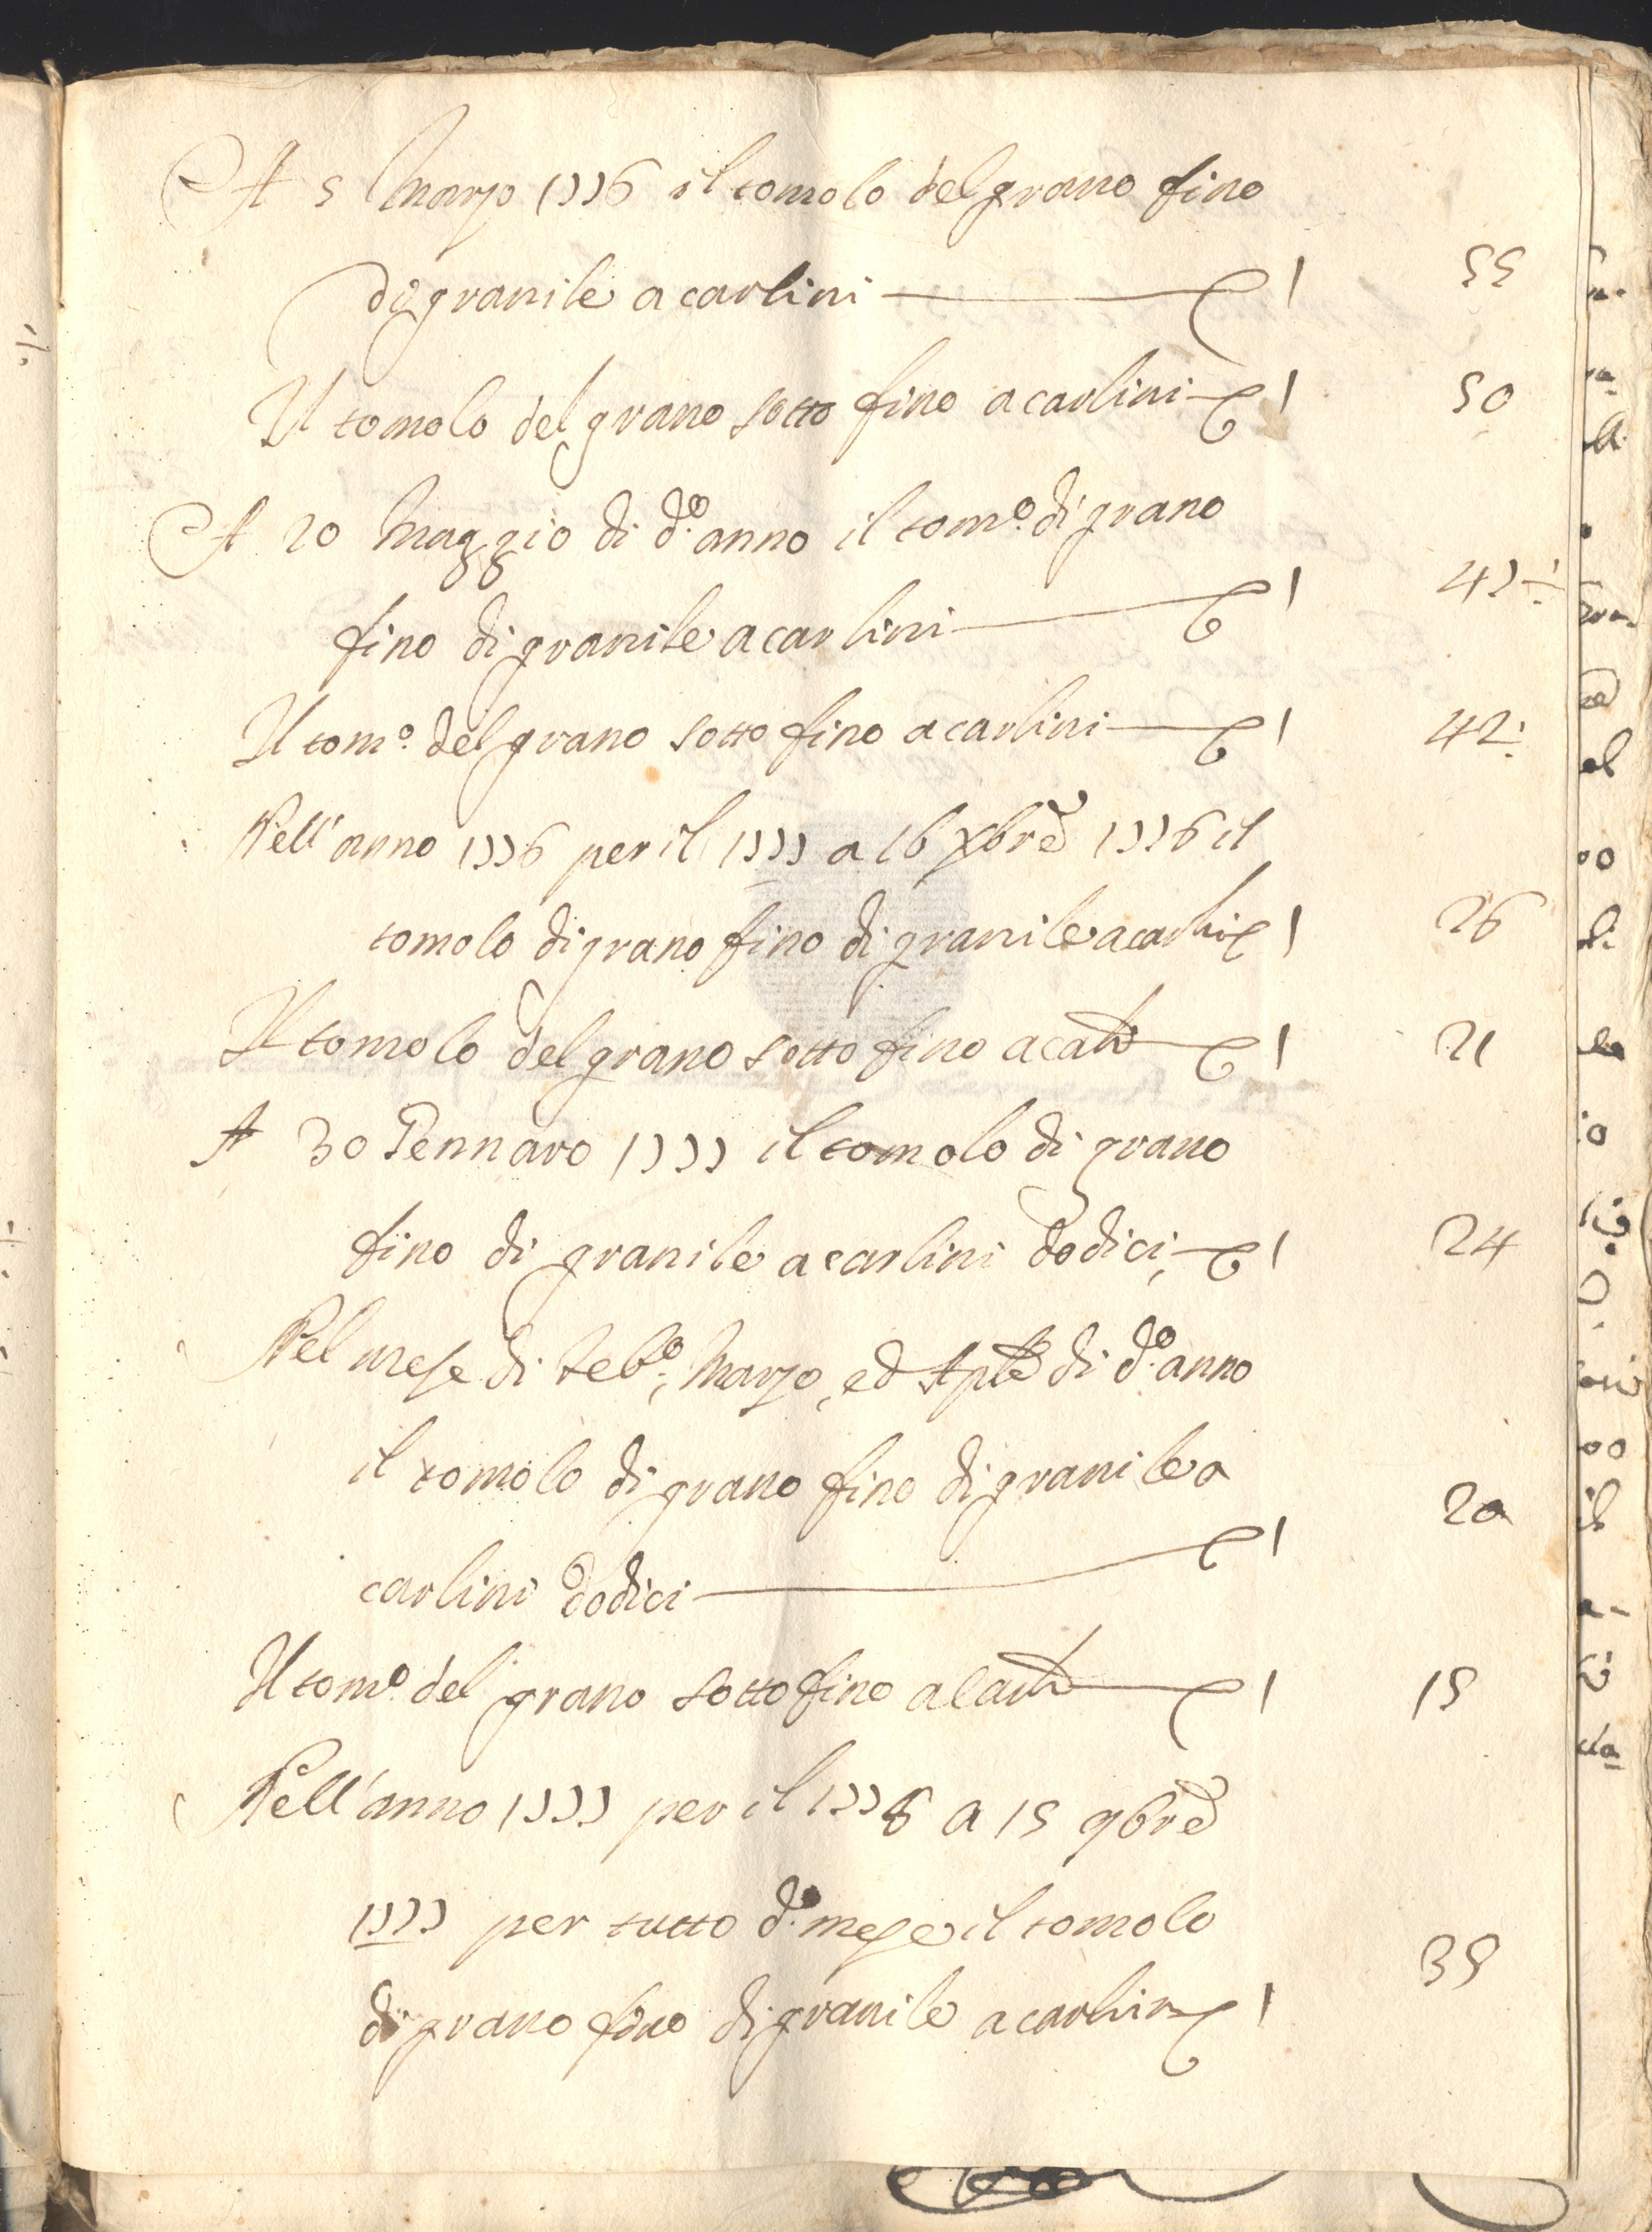 A 5 Marzo 1776 il tomolo del grano fino
di granile a carlini — 55
Il tomolo del grano sotto fino a carlini — 50
A 20 Maggio di d.º anno il tom.º di grano
fino di granile a carlini — 47 ÷
Il tom.º del grano sotto fino a carlini — 42:
Nell'anno 1776 per il 1777 a 16 Xbre 1776 il
tomolo di grano fino di granile a carlini 26
Il tomolo del grano sotto fino a carli — 21
A 30 Gennaro 1777 il tomolo di grano
fino di granile a carlini dodici, — 24
Nel mese di Feb.º, Marzo, ed Aple di d.º anno
il tomolo di grano fino di granile a
carlini dodici — 20
Il tom.º del grano sotto fino a carli — 15
Nell'anno 1777 per il 1778 a 15 9bre
1777 per tutto d.º mese il tomolo
di grano fino di granile a carlini 35